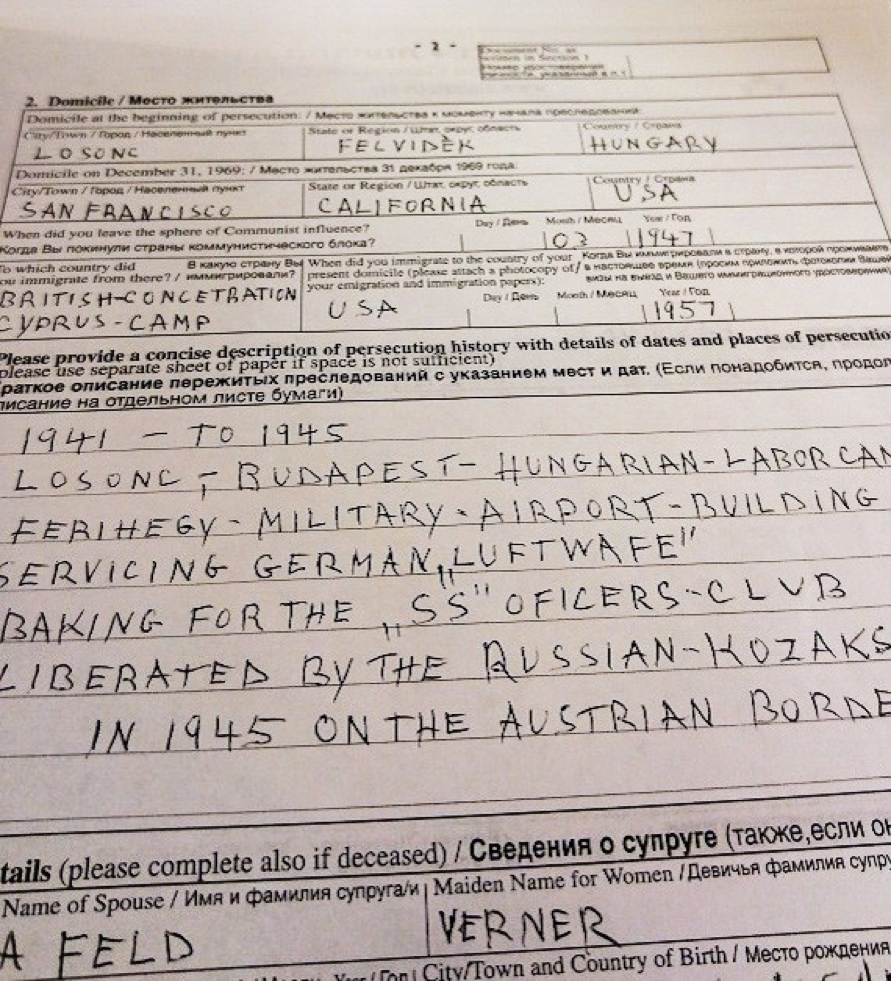 - 2 -
Document No. as
written in Section 1
Номер удостоверения
личности, указанный в п.1
2. Domicile / Место жительства
Domicile at the beginning of persecution: / Место жительства к моменту начала преследований:
City/Town / Город / Населенный пункт State or Region / Штат, округ, область Country / Страна
LOSONC FELVIDÈK HUNGARY
Domicile on December 31, 1969: / Место жительства 31 декабря 1969 года:
City/Town / Город / Населенный пункт State or Region / Штат, округ, область Country / Страна
SAN FRANCISCO CALIFORNIA USA
When did you leave the sphere of Communist influence? Day / День Month / Месяц Year / Год
Когда Вы покинули страны коммунистического блока? 03 1947
To which country did В какую страну Вы When did you immigrate to the country of your Когда Вы иммигрировали в страну, в которой проживаете
ou immigrate from there? / иммигрировали? present domicile (please attach a photocopy of / в настоящее время (просим приложить фотокопии Вашей
your emigration and immigration papers): визы на выезд и Вашего иммиграционного удостоверения)
BRITISH-CONCETRATION USA Day / День Month / Месяц Year / Год
CYPRUS-CAMP 1957
Please provide a concise description of persecution history with details of dates and places of persecutio
please use separate sheet of paper if space is not sufficient)
раткое описание пережитых преследований с указанием мест и дат. (Если понадобится, продол
писание на отдельном листе бумаги)
1941 - TO 1945
LOSONC, - BUDAPEST - HUNGARIAN - LABOR CAM
FERIHEGY - MILITARY - AIRPORT - BUILDING
SERVICING GERMAN „LUFTWAFE"
BAKING FOR THE „SS" OFICERS-CLUB
LIBERATED BY THE RUSSIAN-KOZAKS
IN 1945 ON THE AUSTRIAN BORDE
tails (please complete also if deceased) / Сведения о супруге (также,если он
Name of Spouse / Имя и фамилия супруга/и Maiden Name for Women / Девичья фамилия супру
A FELD VERNER
Year / Год City/Town and Country of Birth / Место рождения